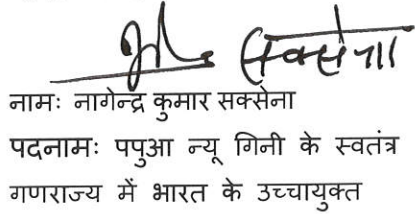 सक्सेना
नामः नागेन्द्र कुमार सक्सेना
पदनामः पपुआ न्यू गिनी के स्वतंत्र
गणराज्य में भारत के उच्चायुक्त